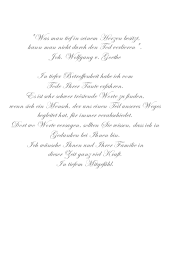 "Was man tief in seinem Herzen besitzt,
kann man nicht durch den Tod verlieren".
Joh. Wolfgang v. Goethe
In tiefer Betroffenheit habe ich vom
Tode Ihrer Tante erfahren.
Es ist sehr schwer tröstende Worte zu finden,
wenn sich ein Mensch, der uns einen Teil unseres Weges
begleitet hat, für immer verabschiedet.
Dort wo Worte versagen, sollten Sie wissen, dass ich in
Gedanken bei Ihnen bin.
Ich wünsche Ihnen und Ihrer Familie in
dieser Zeit ganz viel Kraft.
In tiefem Mitgefühl.